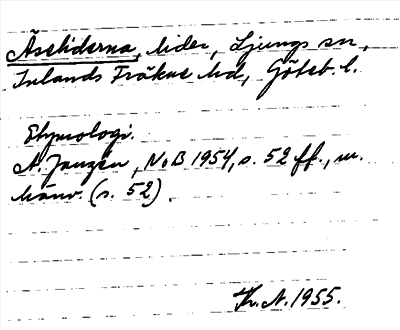 Äseliderna, lider, Ljungs sn,
Inlands Fräkne hd, Göteb. l.
Etymologi.
A. Janzén, NoB 1954, s. 52 ff., m.
hänv. (s. 52).
Th. A. 1955.